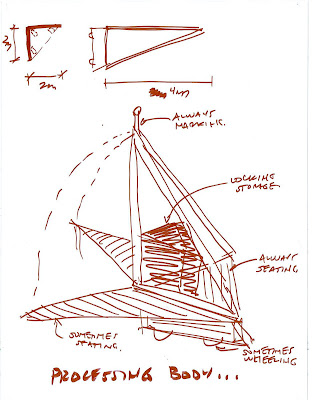 2m
2m
4m
ALWAYS
MARKING.
LOCKING
STORAGE
ALWAYS
SEATING.
SOMETIMES
SEATING.
SOMETIMES
WHEELING
PROCESSING BODY...